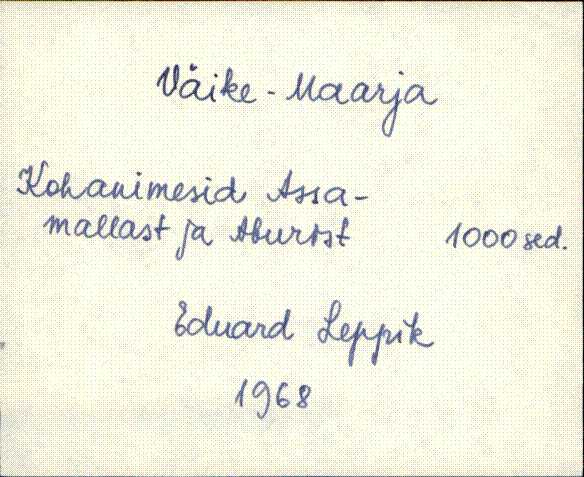 Väike-Maarja
Kohanimesid Assa-
mallast ja Aburist 1000 sed.
Eduard Leppik
1968